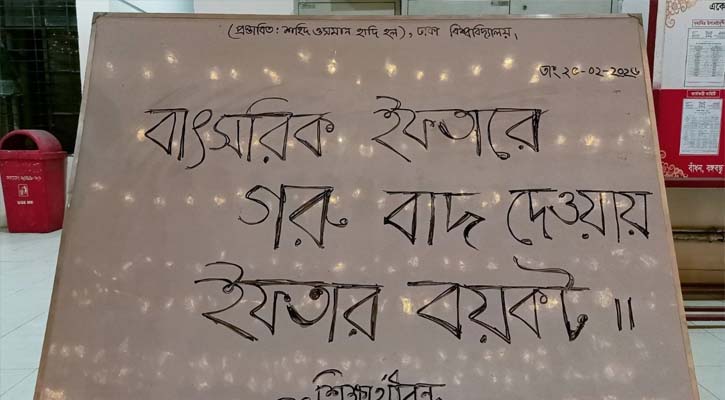 (প্রস্তাবিত: শহিদ ওসমান হাদি হল), ঢাকা বিশ্ববিদ্যালয়।
তাং ২৫-০২-২০২৬
বাৎসরিক ইফতারে
গরু বাদ দেওয়ায়
ইফতার বয়কট ॥
শিক্ষার্থীবৃন্দ
USE ME
বাঁধন, বঙ্গবন্ধু